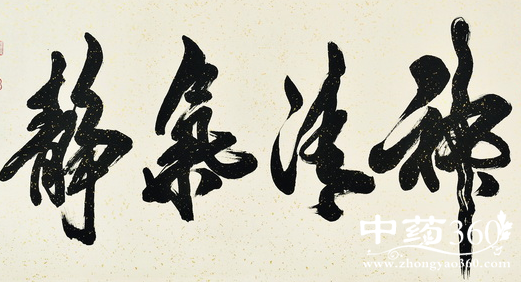 神清氣靜
中药360
www.zhongyao360.com